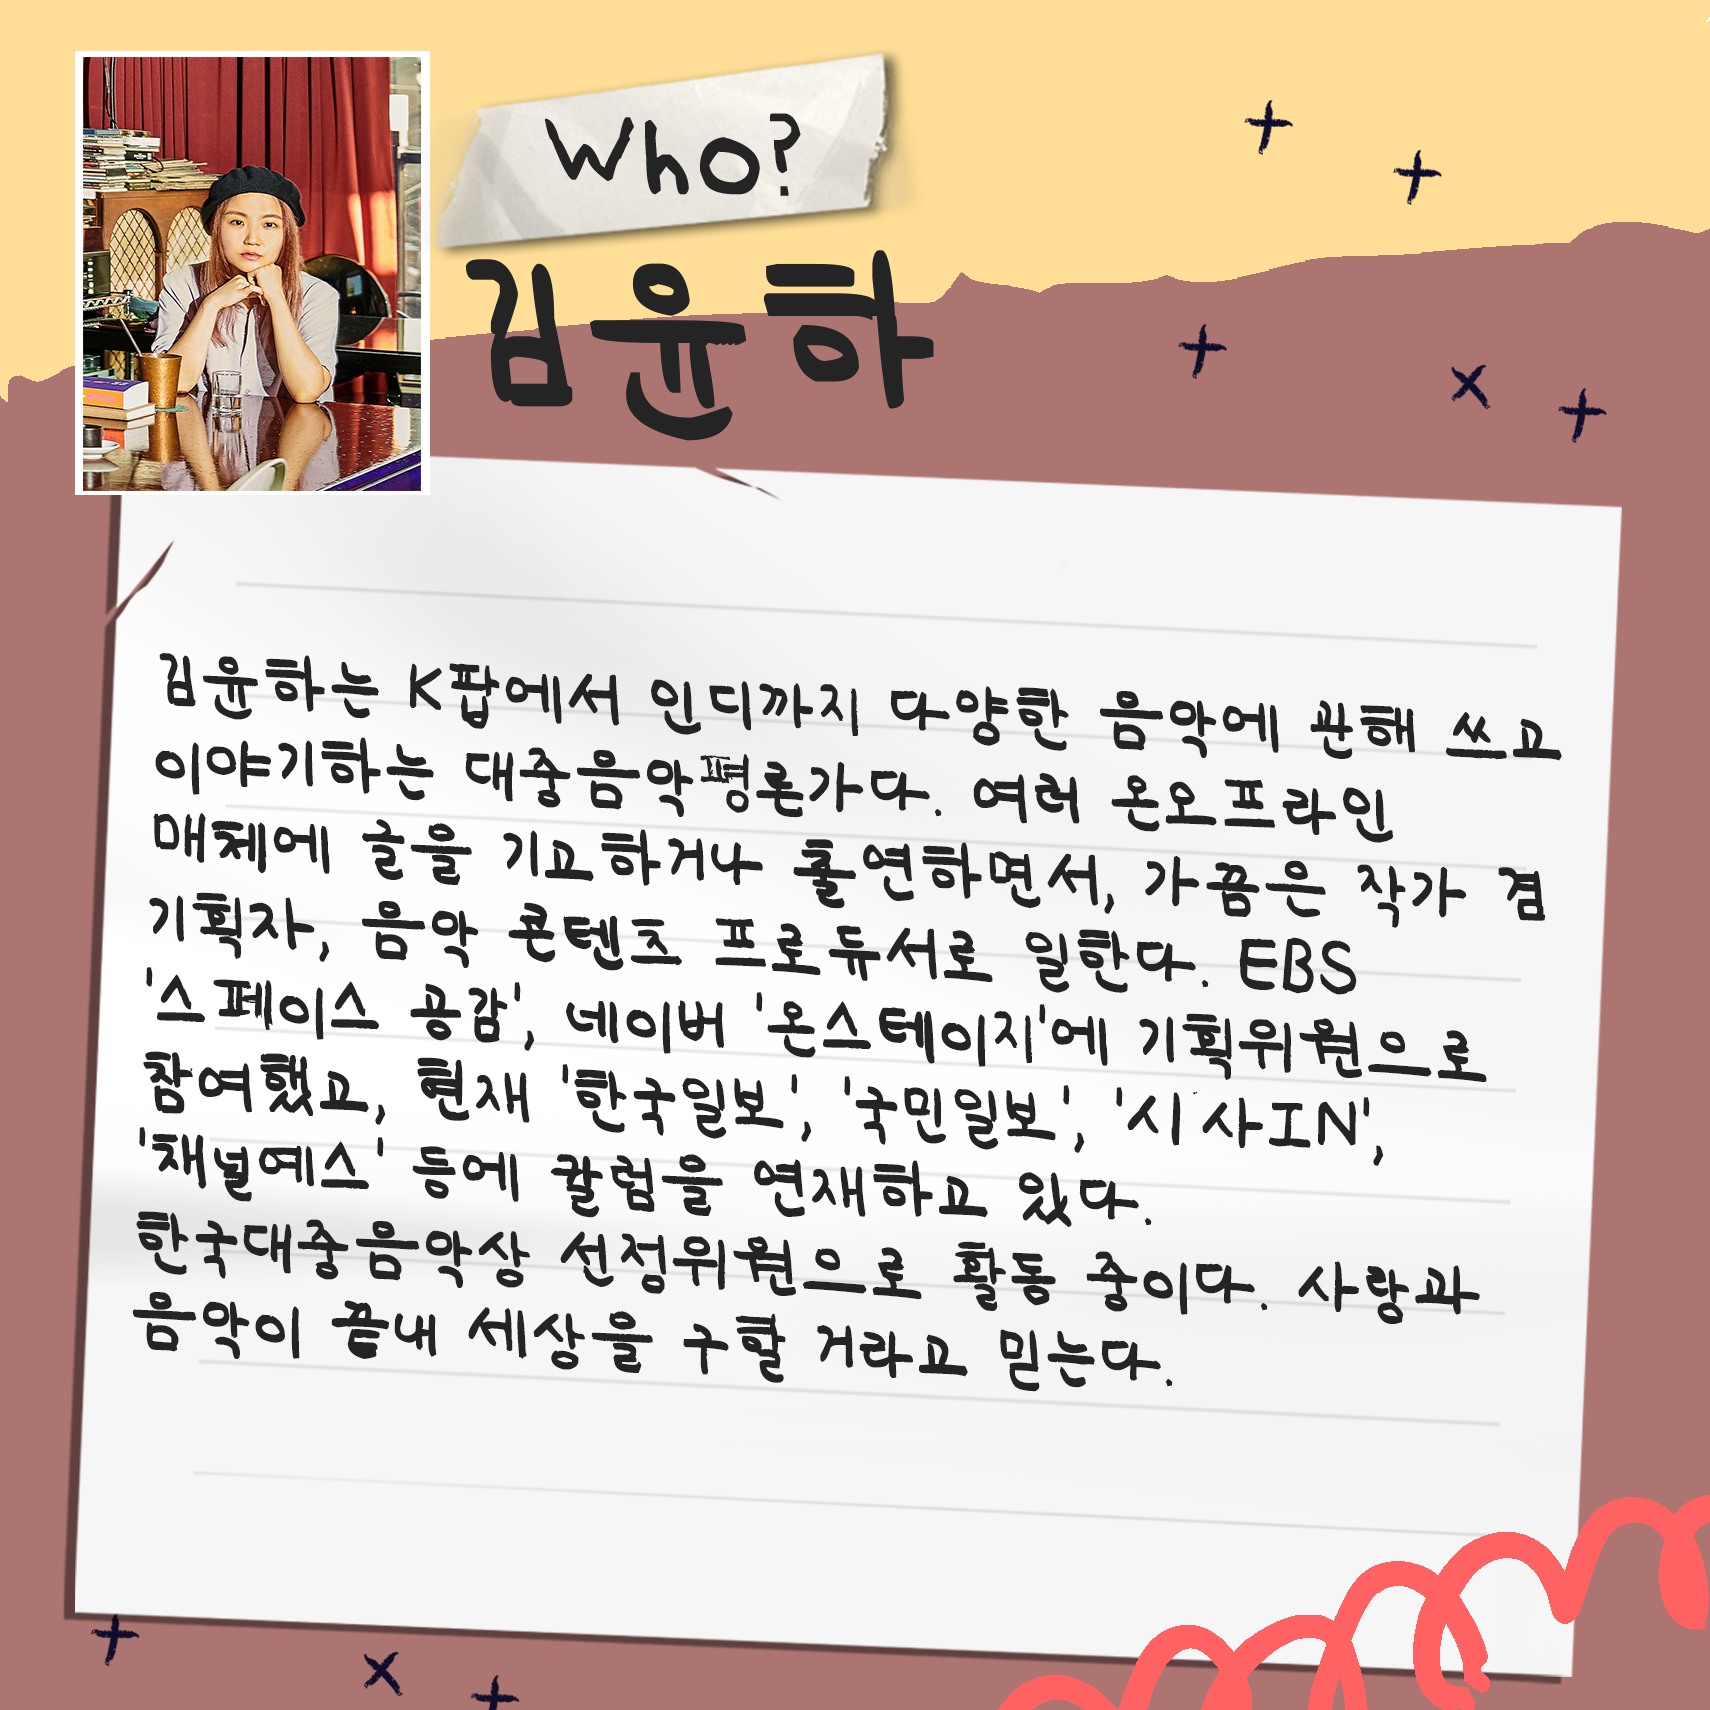 Who?
김윤하
김윤하는 K팝에서 인디까지 다양한 음악에 관해 쓰고
이야기하는 대중음악평론가다. 여러 온오프라인
매체에 글을 기고하거나 출연하면서, 가끔은 작가 겸
기획자, 음악 콘텐츠 프로듀서로 일한다. EBS
'스페이스 공감', 네이버 '온스테이지'에 기획위원으로
참여했고, 현재 '한국일보', '국민일보', '시사IN',
'채널예스' 등에 칼럼을 연재하고 있다.
한국대중음악상 선정위원으로 활동 중이다. 사랑과
음악이 끝내 세상을 구할 거라고 믿는다.